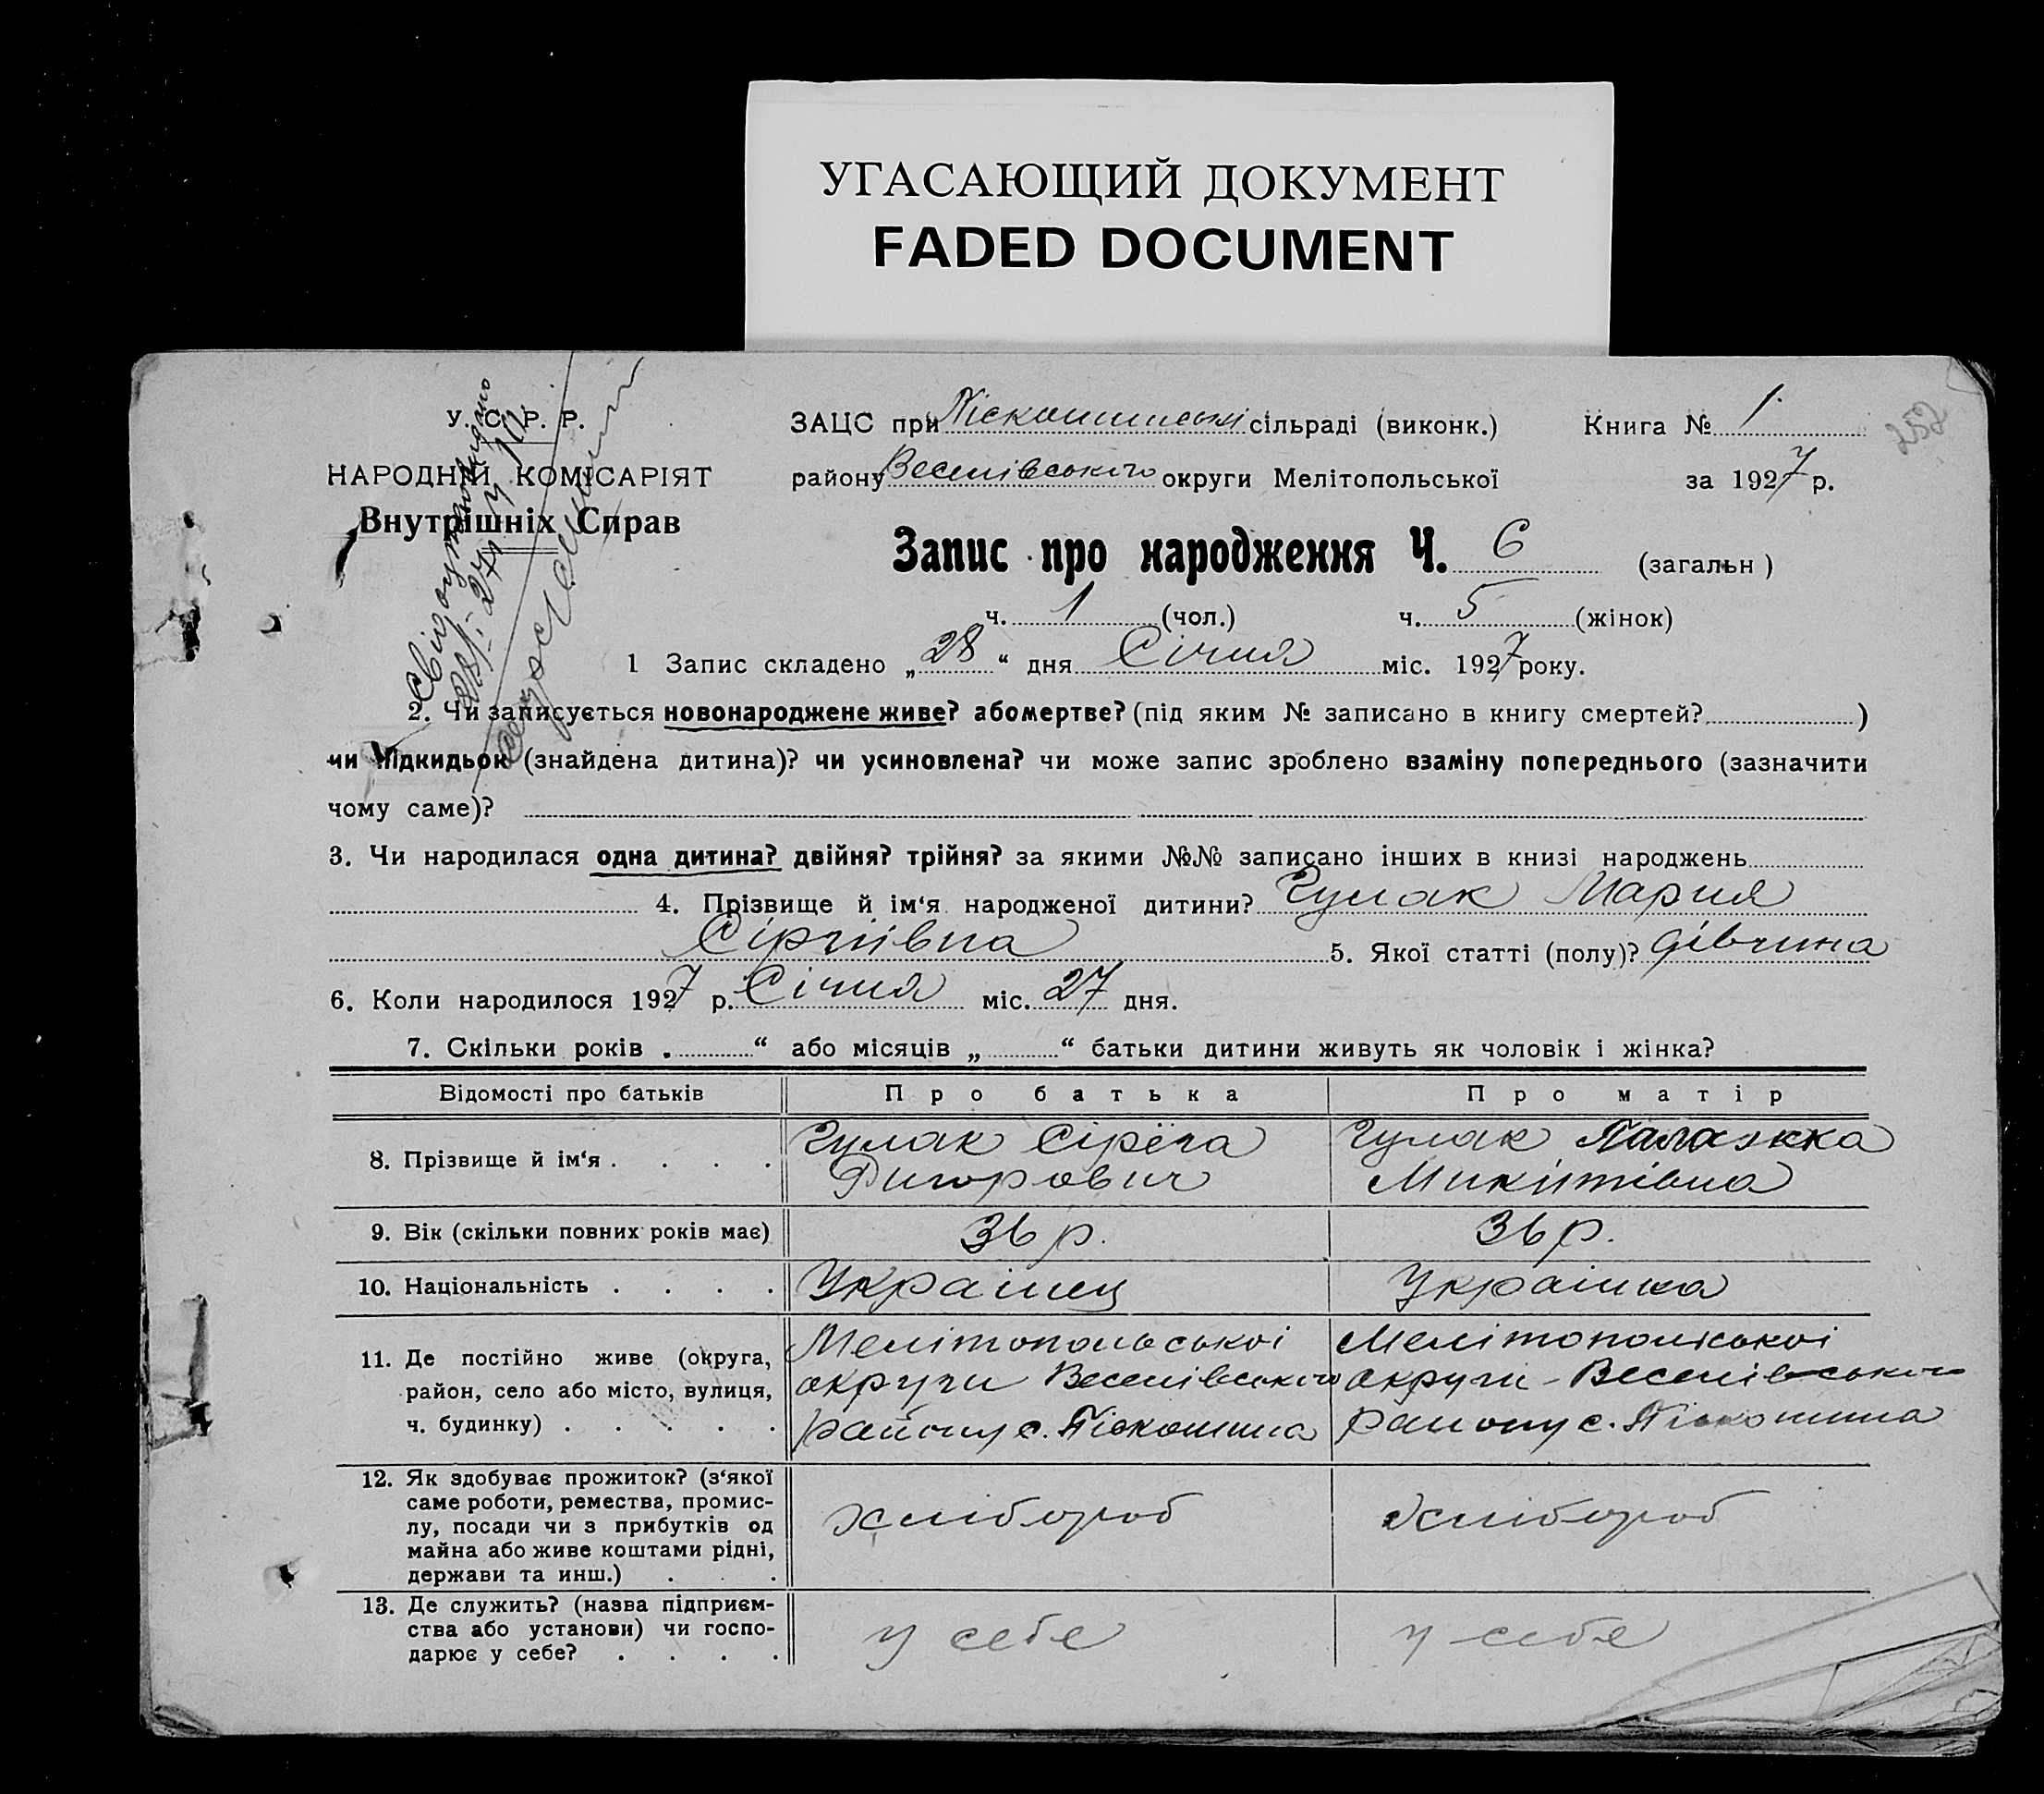 УГАСАЮЩИЙ ДОКУМЕНТ
FADED DOCUMENT
У. С. Р. Р.
НАРОДНІЙ КОМІСАРІЯТ
Внутрішніх Справ
ЗАЦС при Піскошинські сільраді (виконк.)
Книга № 1.
252
району Веселівського округи Мелітопольської
за 1927 р.
Запис про народження Ч. 6 (загальн )
ч. 1 (чол.) ч. 5 (жінок)
1 Запис складено „ 28 “ дня Січня міс. 1927 року.
2. Чи записується новонароджене живе? або мертве? (під яким № записано в книгу смертей? )
чи підкидьок (знайдена дитина)? чи усиновлена? чи може запис зроблено взаміну попереднього (зазначити
чому саме)?
3. Чи народилася одна дитина? двійня? трійня? за якими №№ записано інших в книзі народжень
4. Прізвище й ім‘я народженої дитини? Гулак Мария
Сіргіівна 5. Якої статті (полу)? дівчина
6. Коли народилося 1927 р. Січня міс. 27 дня.
7. Скільки років „ “ або місяців „ “ батьки дитини живуть як чоловік і жінка?
Відомості про батьків Про батька Про матір
8. Прізвище й ім‘я . . . .
Гулак Сірёга
Григорович
Гулак Палажка
Микитівна
9. Вік (скільки повних років має) 36 р. 36 р.
10. Національність . . . . Украінец Украінка
11. Де постійно живе (округа,
район, село або місто, вулиця,
ч. будинку) . . . . .
Мелітопольскоі
округи Веселівського
району с. Піскошина
Мелітопольскоі
округи - Веселівського
району с. Піскошина
12. Як здобуває прожиток? (з‘якої
саме роботи, ремества, промис-
лу, посади чи з прибутків од
майна або живе коштами рідні,
держави та инш.) . . .
хлібороб
хлібороб
13. Де служить? (назва підприєм-
ства або установи) чи госпо-
дарює у себе? . . . .
у себе
у себе